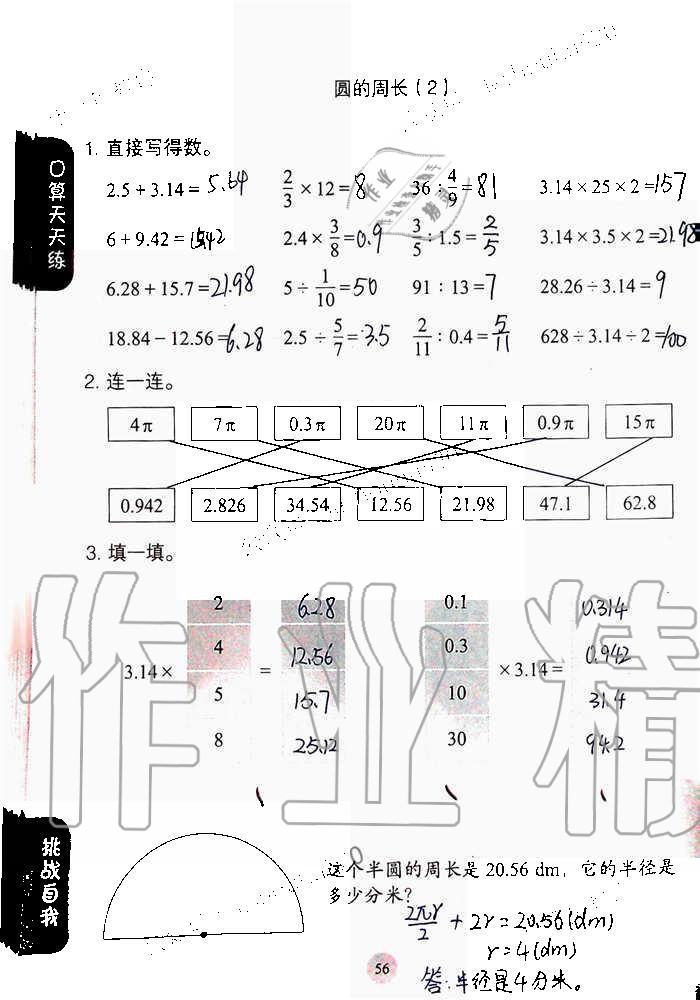 圆的周长(2)
口算天天练
1. 直接写得数。
2.5+3.14=5.64 2/3×12=8 36:4/9=81 3.14×25×2=157
6+9.42=15.42 2.4×3/8=0.9 3/5:1.5=2/5 3.14×3.5×2=21.98
6.28+15.7=21.98 5÷1/10=50 91:13=7 28.26÷3.14=9
18.84-12.56=6.28 2.5÷5/7=3.5 2/11:0.4=5/11 628÷3.14÷2=100
2. 连一连。
4π 7π 0.3π 20π 11π 0.9π 15π
0.942 2.826 34.54 12.56 21.98 47.1 62.8
3. 填一填。
2 6.28 0.1 0.314
4 12.56 0.3 0.942
3.14× = ×3.14=
5 15.7 10 31.4
8 25.12 30 94.2
挑战自我
这个半圆的周长是 20.56 dm，它的半径是
多少分米?
2πr/2+2r=20.56(dm)
r=4(dm)
答:半径是4分米。
56
作业精